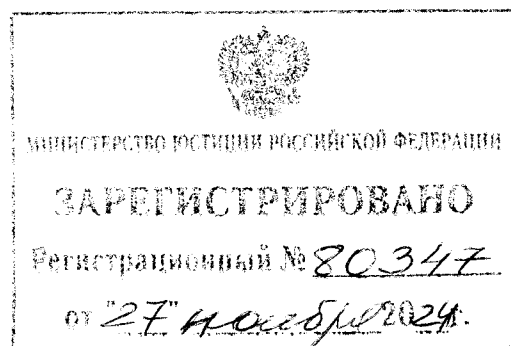 МИНИСТЕРСТВО ЮСТИЦИИ РОССИЙСКОЙ ФЕДЕРАЦИИ
ЗАРЕГИСТРИРОВАНО
Регистрационный № 80347
от "27" ноября 2024г.